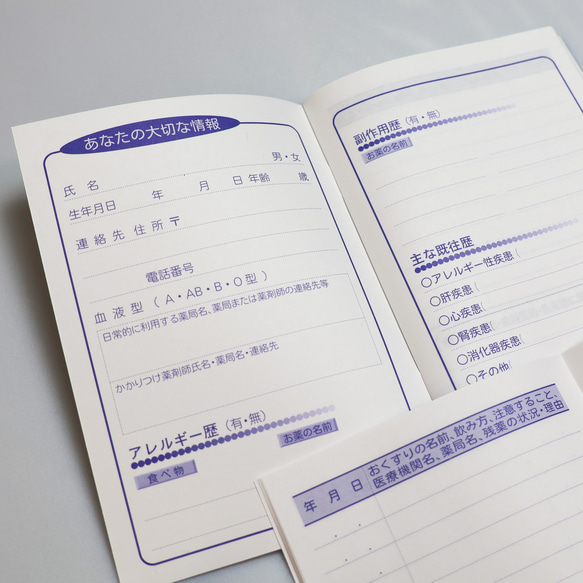 あなたの大切な情報
氏 名 男・女
生年月日 年 月 日 年齢 歳
連絡先住所〒
電話番号
血液型（A・AB・B・O型）
日常的に利用する薬局名、薬局または薬剤師の連絡先等
かかりつけ薬剤師氏名・薬局名・連絡先
アレルギー歴（有・無）
食べ物 お薬の名前
副作用歴（有・無）
お薬の名前
主な既往歴
○アレルギー性疾患(
○肝疾患(
○心疾患(
○腎疾患(
○消化器疾患(
○その他(
年 月 日
おくすりの名前、飲み方、注意すること、
医療機関名、薬局名、残薬の状況・理由